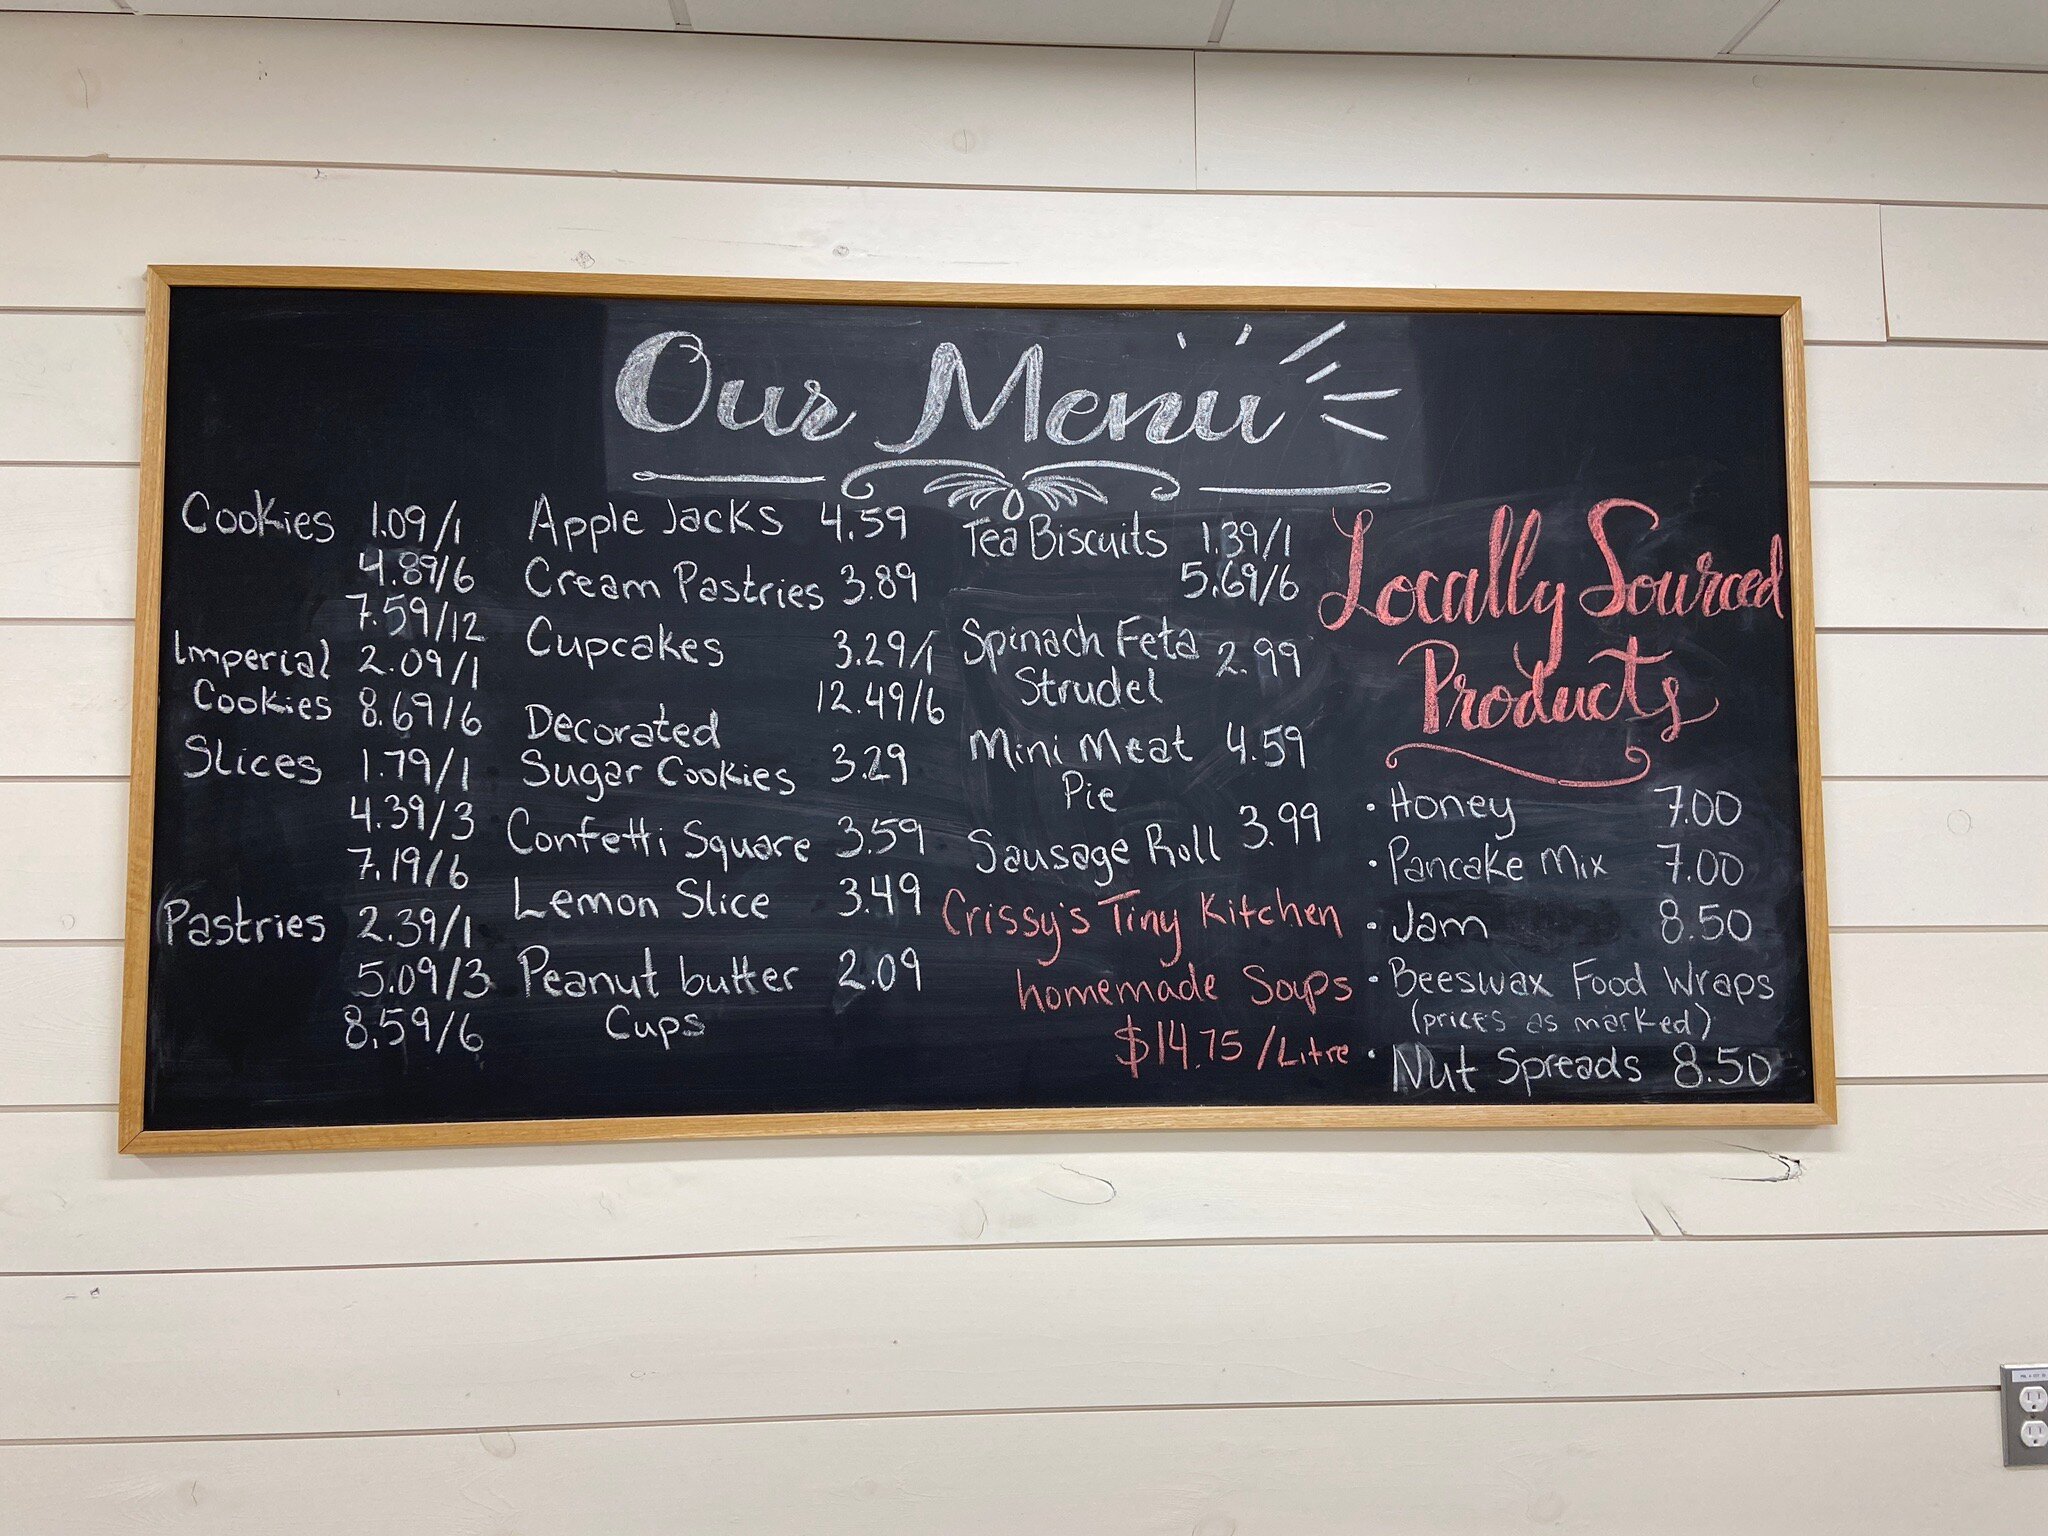 Our Menu
Cookies 1.09/1
4.89/6
7.59/12
Imperial 2.09/1
Cookies 8.69/6
Slices 1.79/1
4.39/3
7.19/6
Pastries 2.39/1
5.09/3
8.59/6
Apple Jacks 4.59
Cream Pastries 3.89
Cupcakes 3.29/1
12.49/6
Decorated
Sugar Cookies 3.29
Confetti Square 3.59
Lemon Slice 3.49
Peanut butter 2.09
Cups
Tea Biscuits 1.39/1
5.69/6
Spinach Feta 2.99
Strudel
Mini Meat 4.59
Pie
Sausage Roll 3.99
Crissy's Tiny Kitchen
homemade Soups
$14.75/Litre
Locally Sourced
Products
• Honey 7.00
• Pancake Mix 7.00
• Jam 8.50
• Beeswax Food Wraps
(prices as marked)
• Nut Spreads 8.50